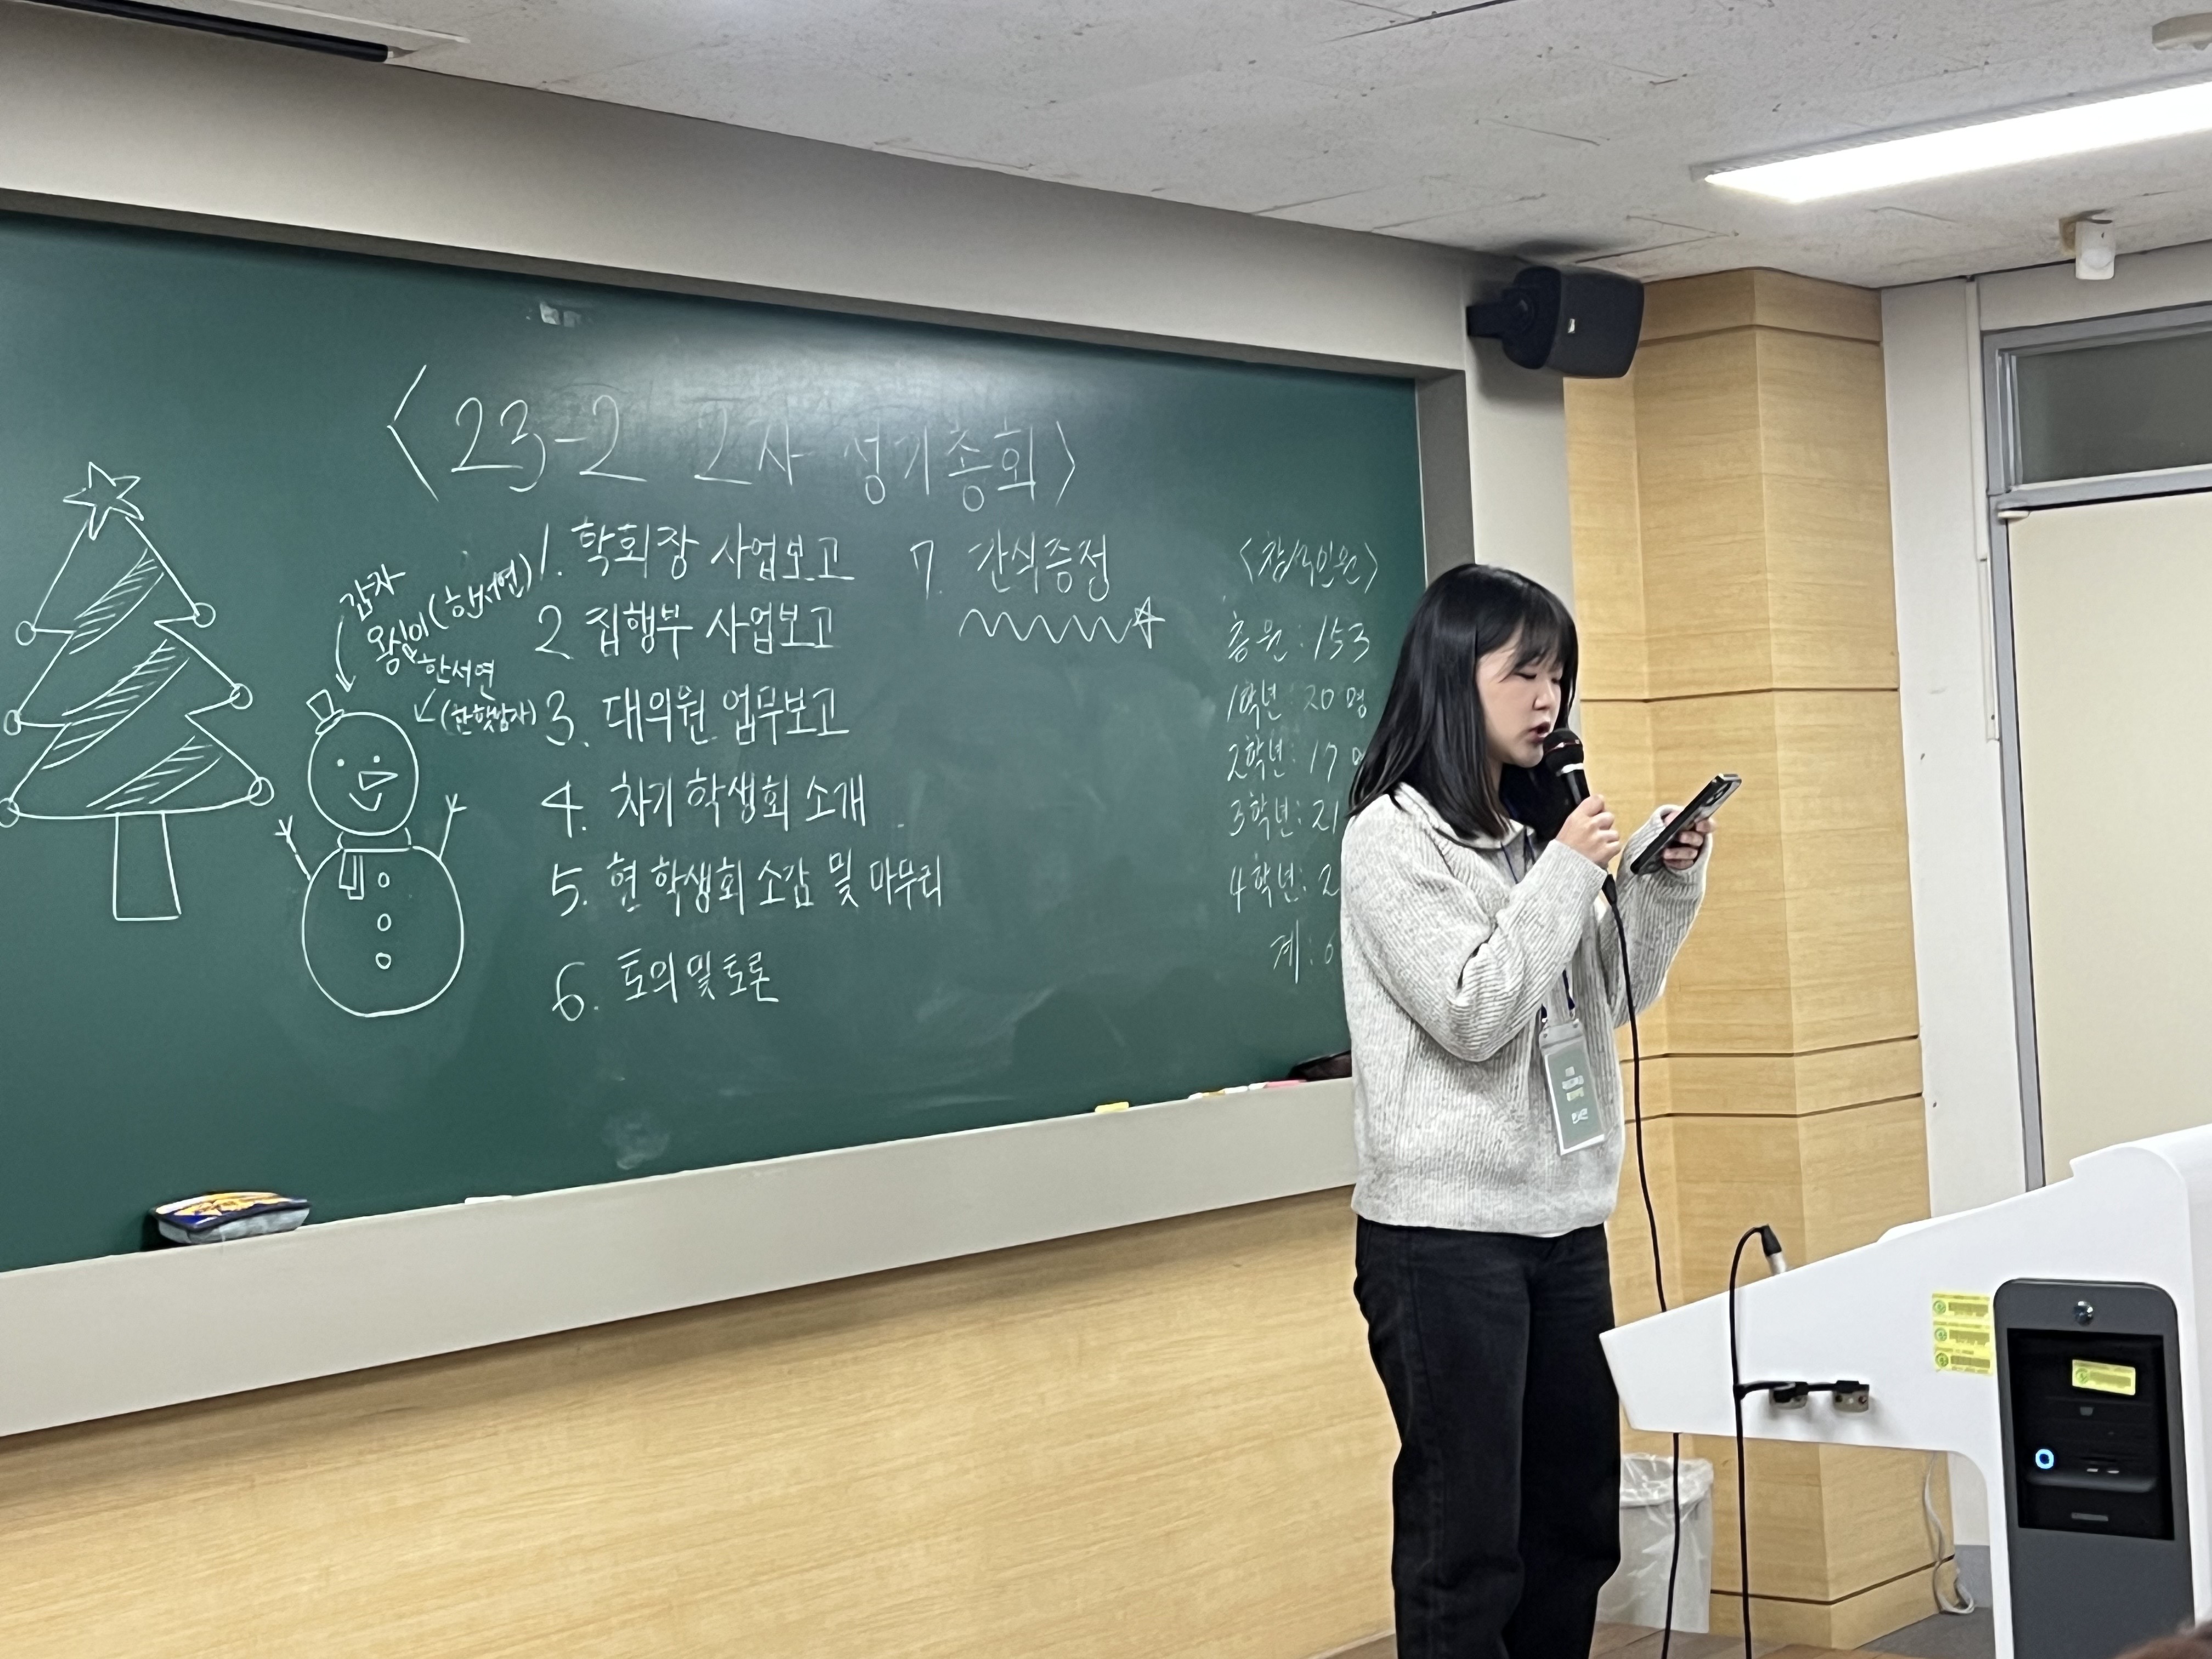 <23-2 고사 정기총회>
1. 학회장 사업보고
2. 집행부 사업보고
3. 대의원 업무보고
4. 차기 학생회 소개
5. 현 학생회 소감 및 마무리
6. 토의 및 토론
7. 간식증정
감자
왕심이(한서연)
한서연
총원 : 153
1학년 : 20명
2학년 : 17
3학년 : 21
4학년 : 2
계 :